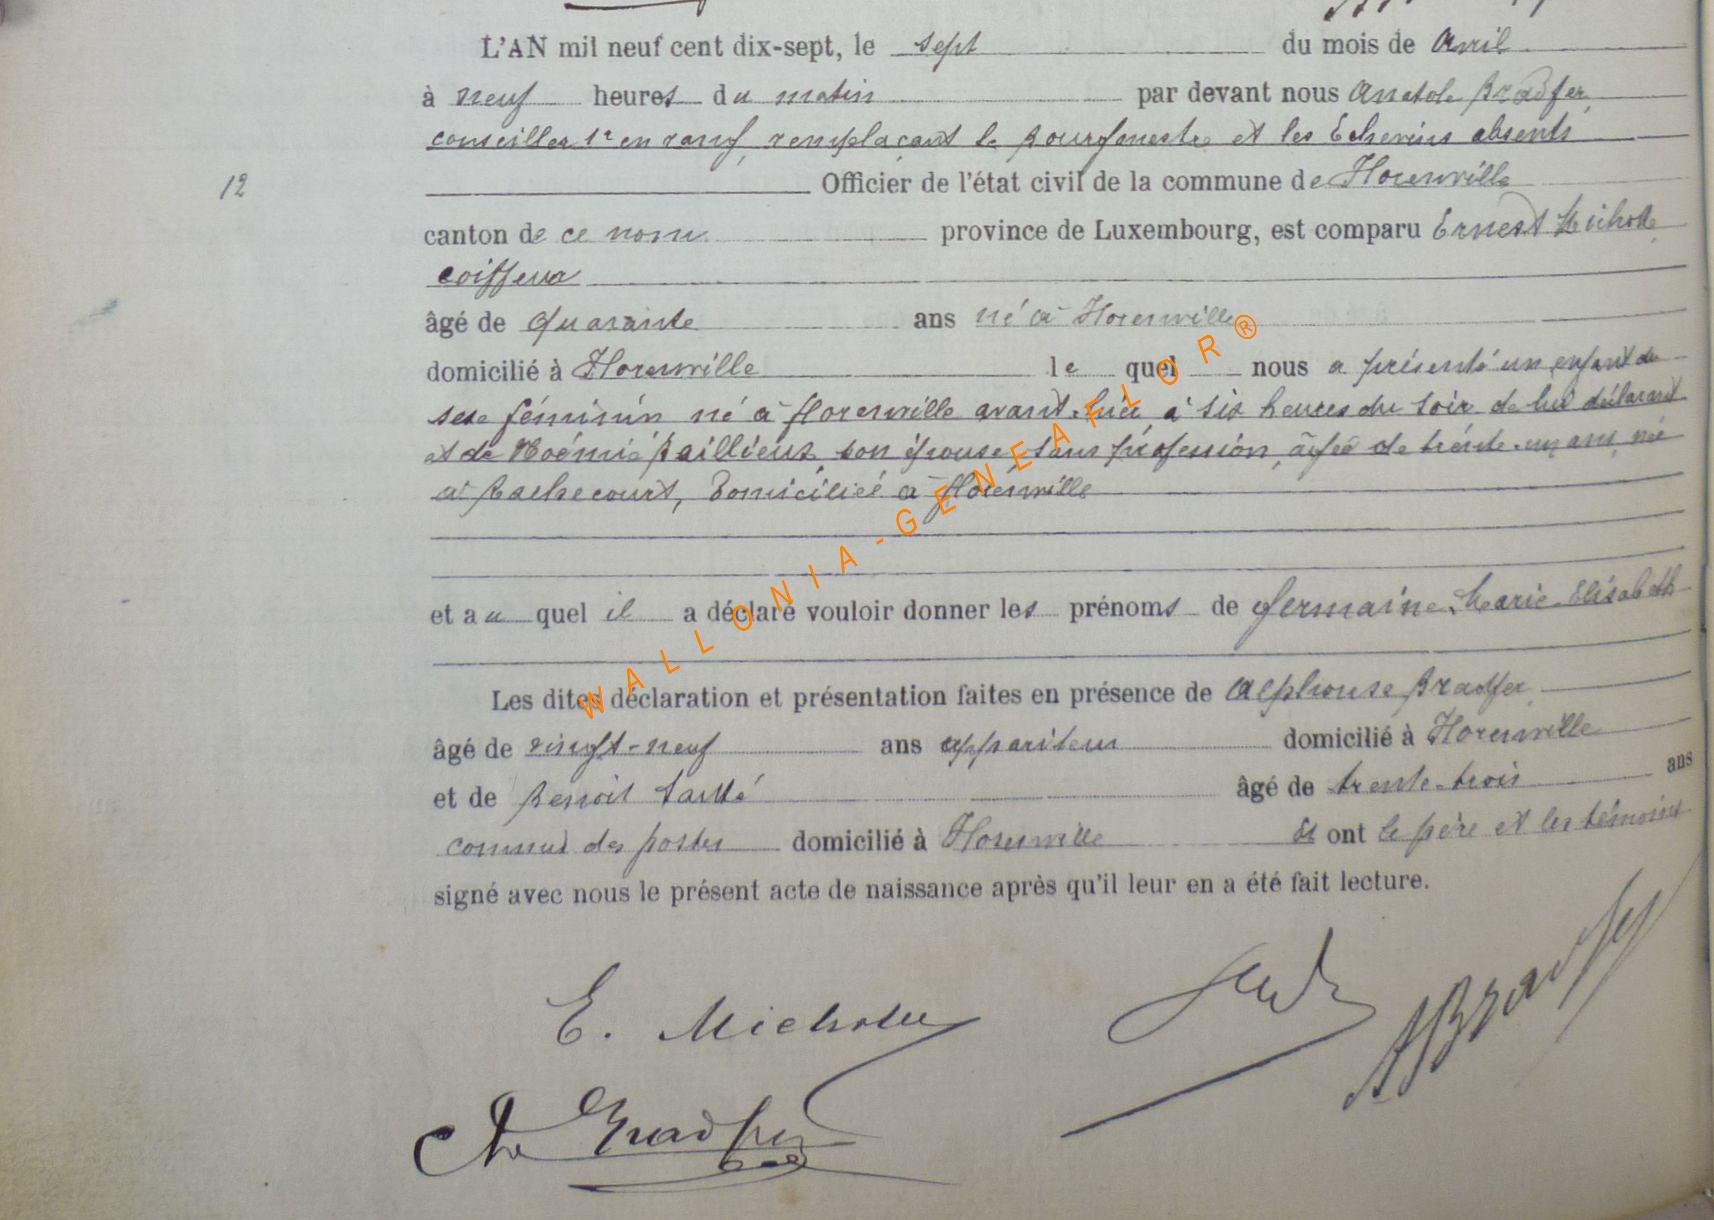 L'AN mil neuf cent dix-sept, le sept du mois de Avril
à neuf heures du matin par devant nous Anatole Bradfer
conseiller 1r en rang, remplaçant le Bourgmestre et les Echevins absents
12 Officier de l'état civil de la commune de Florenville
canton de ce nom province de Luxembourg, est comparu Ernest Michotte
coiffeur
âgé de quarante ans né à Florenville
domicilié à Florenville lequel nous a présenté un enfant du
sexe féminin né à Florenville avant-hier à six heures du soir de lui déclarant
et de Noémie Baillieux, son épouse, sans profession, âgée de trente-un ans, née
à Rachecourt, domiciliée à Florenville
et au quel il a déclaré vouloir donner les prénoms de Germaine Marie Elisabeth
Les dites déclaration et présentation faites en présence de Alphonse Bradfer
âgé de vingt-neuf ans appariteur domicilié à Florenville
et de Benoit âgé de trente-trois ans
commis des postes domicilié à Florenville et ont le père et les témoins
signé avec nous le présent acte de naissance après qu'il leur en a été fait lecture.
E. Michotte
ABradfer
Bradfer
WALLONIA-GENEAFLOR®